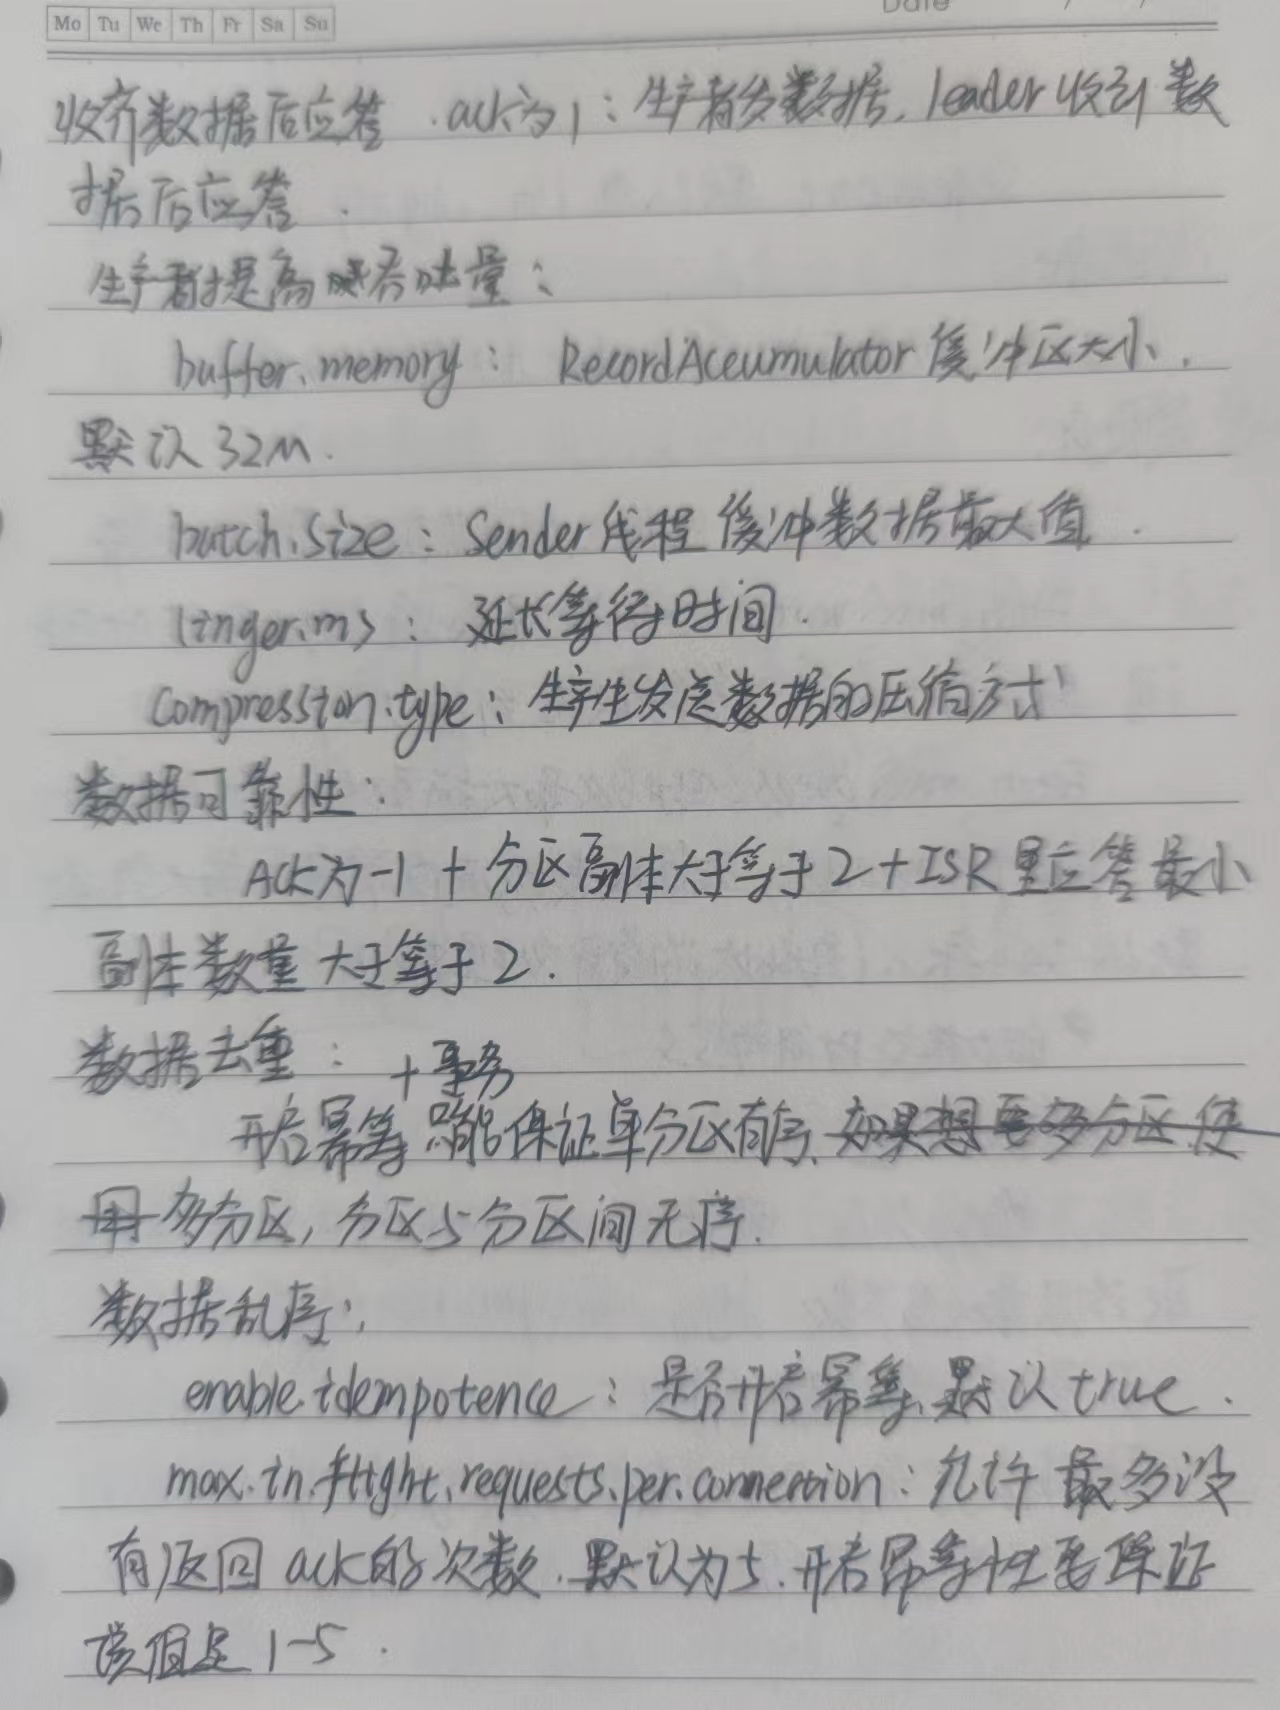 Mo Tu We Th Fr Sa Su
Date / /
收齐数据后应答.ack为1:生产者发数据,leader收到数
据后应答.
生产者提高吞吐量:
buffer.memory: RecordAccumulator缓冲区大小.
默认32M.
batch.size:Sender线程缓冲数据最大值.
linger.ms:延长等待时间.
compression.type:生产生发送数据的压缩方式
数据可靠性:
Ack为-1+分区副本大于等于2+ISR里应答最小
副本数量大于等于2.
数据去重:
+事务
开启幂等 只能保证单分区有序.如果想要多分区使
用多分区,分区与分区间无序.
数据乱序:
enable.idempotence:是否开启幂等,默认true.
max.in.flight.requests.per.connection:允许最多没
有返回ack的次数.默认为5.开启幂等性要保证
该值是1-5.